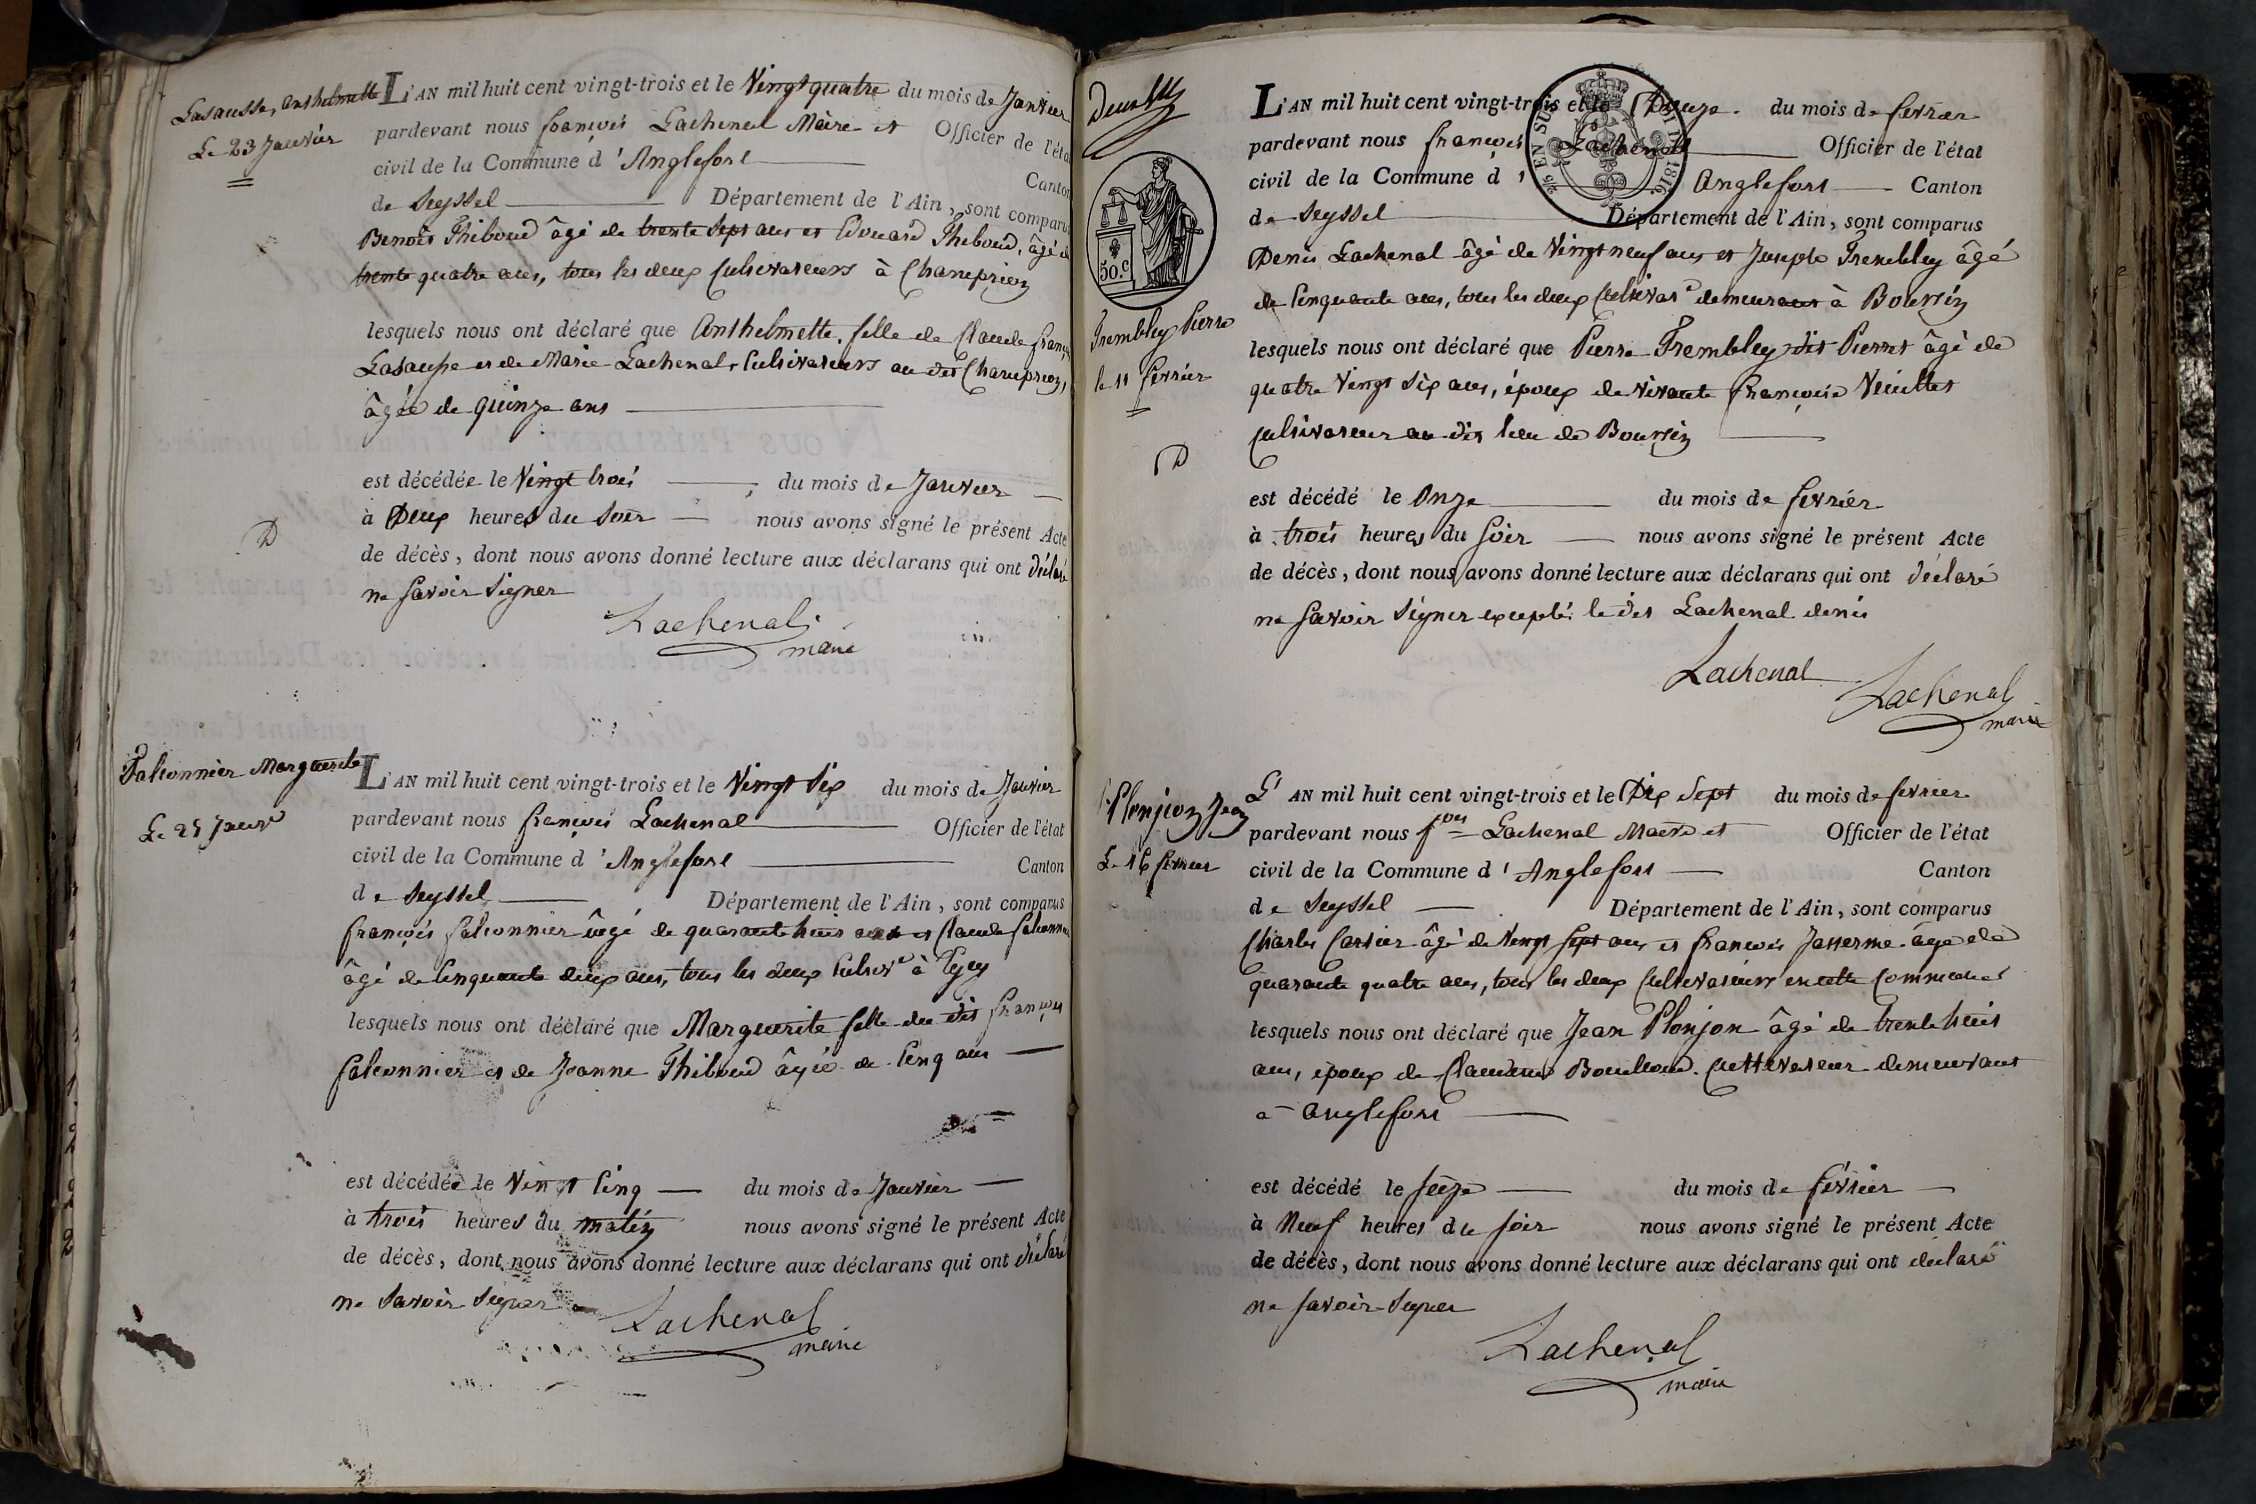 Lasausse, Anthelmette
Le 23 Janvier
L'AN mil huit cent vingt-trois et le Vingt quatre du mois de Janvier
pardevant nous françois Lachenal Maire et Officier de l'état
civil de la Commune d'Anglefort Canton
de Seyssel Département de l'Ain, sont comparus
Benoit Thiboud âgé de trente sept ans et Edouard Thiboud, âgé de
trente quatre ans, tous les deux Cultivateurs à Champrion
lesquels nous ont déclaré que Anthelmette, fille de Claude françois
Lasausse et de Marie Lachenal, Cultivateurs au dit Champrion,
âgée de quinze ans
est décédée le Vingt trois du mois de Janvier
à Deux heures du Soir nous avons signé le présent Acte
de décès, dont nous avons donné lecture aux déclarans qui ont déclaré
ne Savoir Signer
D
Lachenal
maire
Falconnier Marguerite
Le 25 Janvr
L'AN mil huit cent vingt-trois et le Vingt Six du mois de Janvier
pardevant nous françois Lachenal Officier de l'état
civil de la Commune d'Anglefort Canton
de Seyssel Département de l'Ain, sont comparus
françois falconnier âgé de quarante huit ans et Claude falconnier
âgé de Cinquante deux ans, tous les deux Cultivr à
lesquels nous ont déclaré que Marguerite fille du dit françois
falconnier et de Jeanne Thiboud âgée de Cinq ans
est décédée le Vingt Cinq du mois de Janvier
à trois heures du matin nous avons signé le présent Acte
de décès, dont nous avons donné lecture aux déclarans qui ont déclaré
ne Savoir Signer
Lachenal
maire
50.c
Trembley Pierre
le 11 fevrier
D
EN SUS 1816
L'AN mil huit cent vingt-trois et le Douze du mois de fevrier
pardevant nous françois Lachenal Officier de l'état
civil de la Commune d'Anglefort Canton
de Seyssel Département de l'Ain, sont comparus
Denis Lachenal âgé de Vingt neuf ans et Joseph Trembley âgé
de Cinquante ans, tous les deux Cultivatr demeurant à Boursin
lesquels nous ont déclaré que Pierre Trembley dit Pierret âgé de
quatre Vingt Six ans, époux de vivante françoise
Cultivateur au dit lieu de Boursin
est décédé le Onze du mois de fevrier
à trois heures du Soir nous avons signé le présent Acte
de décès, dont nous avons donné lecture aux déclarans qui ont déclaré
ne Savoir Signer excepté le dit Lachenal denis
Lachenal
Lachenal
maire
Plonjon Jean
Le 16 fevrier
L'AN mil huit cent vingt-trois et le Dix Sept du mois de fevrier
pardevant nous fçois Lachenal Maire et Officier de l'état
civil de la Commune d'Anglefort Canton
de Seyssel Département de l'Ain, sont comparus
Charles Cartier âgé de Vingt Sept ans et françois Jasserme âgé de
quarante quatre ans, tous les deux Cultivateurs en cette Commune
lesquels nous ont déclaré que Jean Plonjon âgé de trente huit
ans, époux de Claudine Bouilloud Cultivateur demeurant
à Anglefort
est décédé le Seize du mois de fevrier
à Neuf heures du Soir nous avons signé le présent Acte
de décès, dont nous avons donné lecture aux déclarans qui ont déclaré
ne Savoir Signer
Lachenal
maire